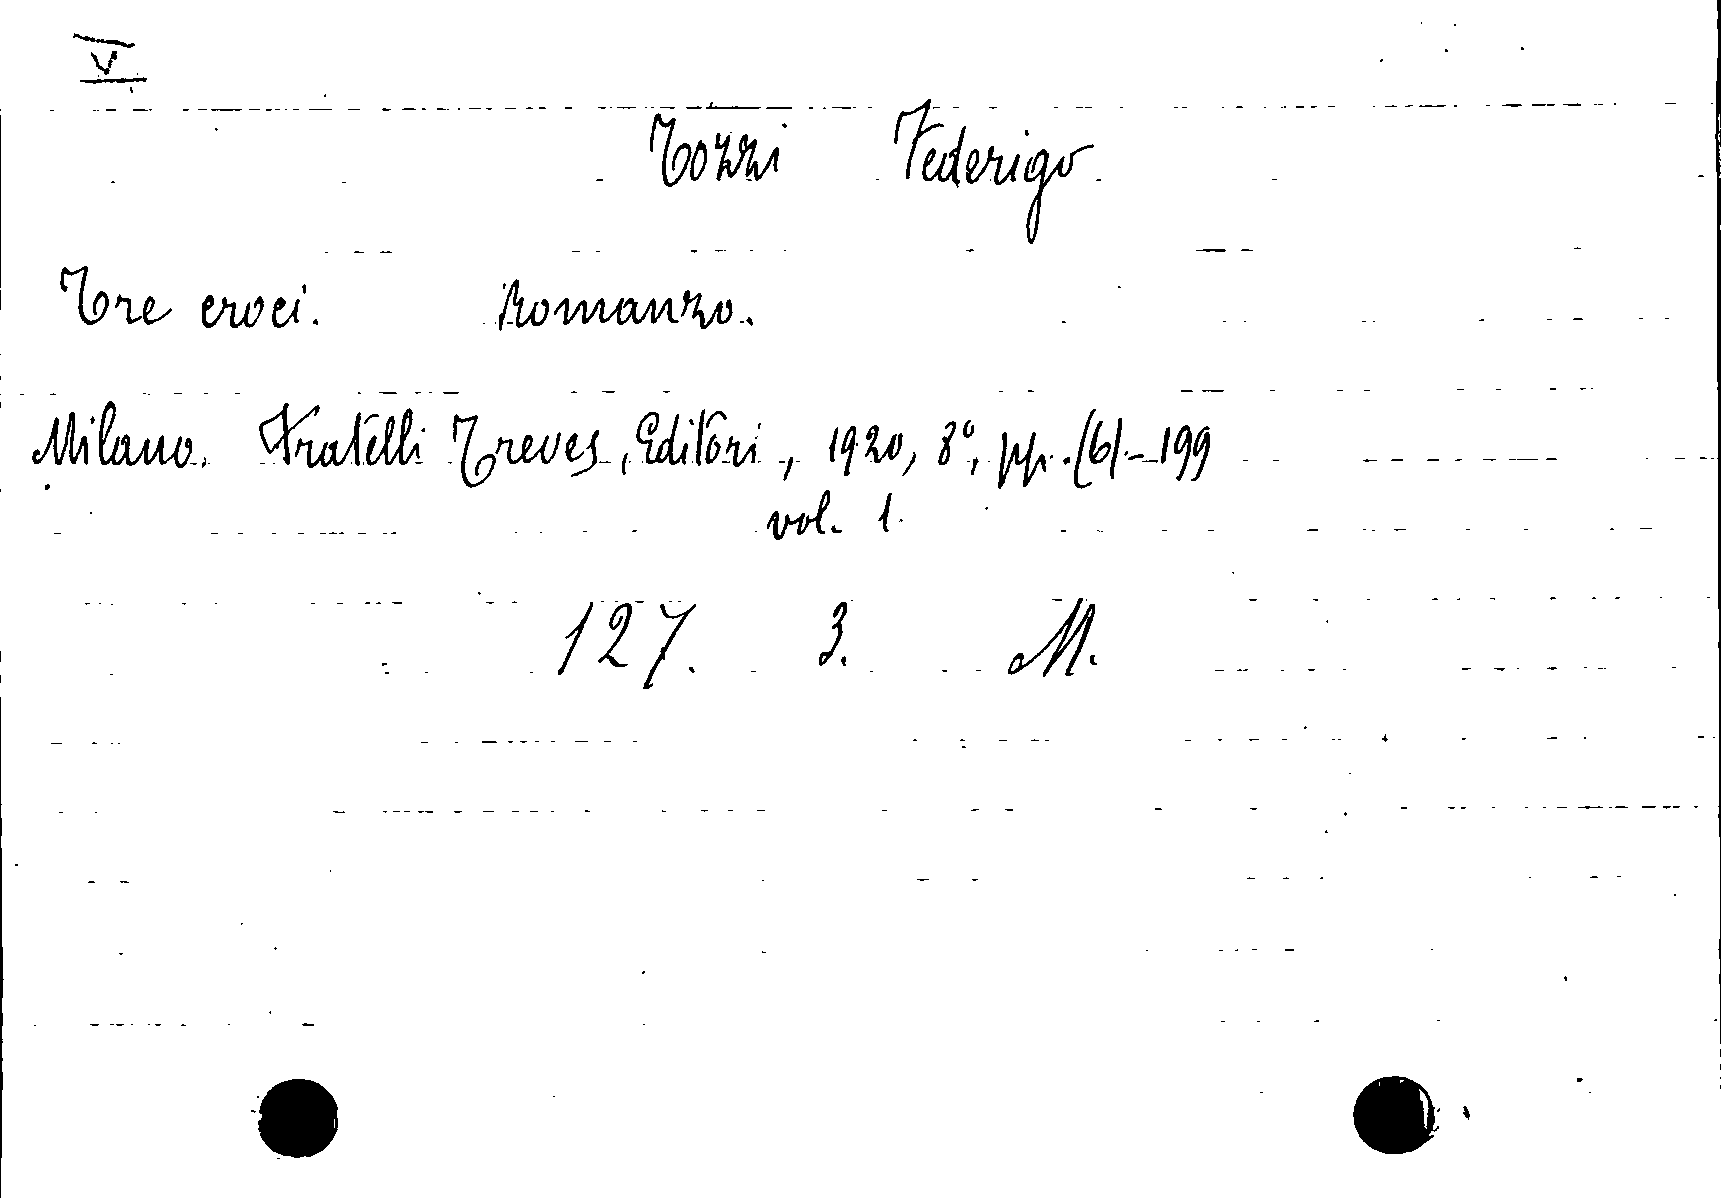 V
Tozzi Federigo
Tre croci. Romanzo.
Milano. Fratelli Treves, Editori, 1920, 8°, pp. (6)-199
vol. 1.
127. 3. M.